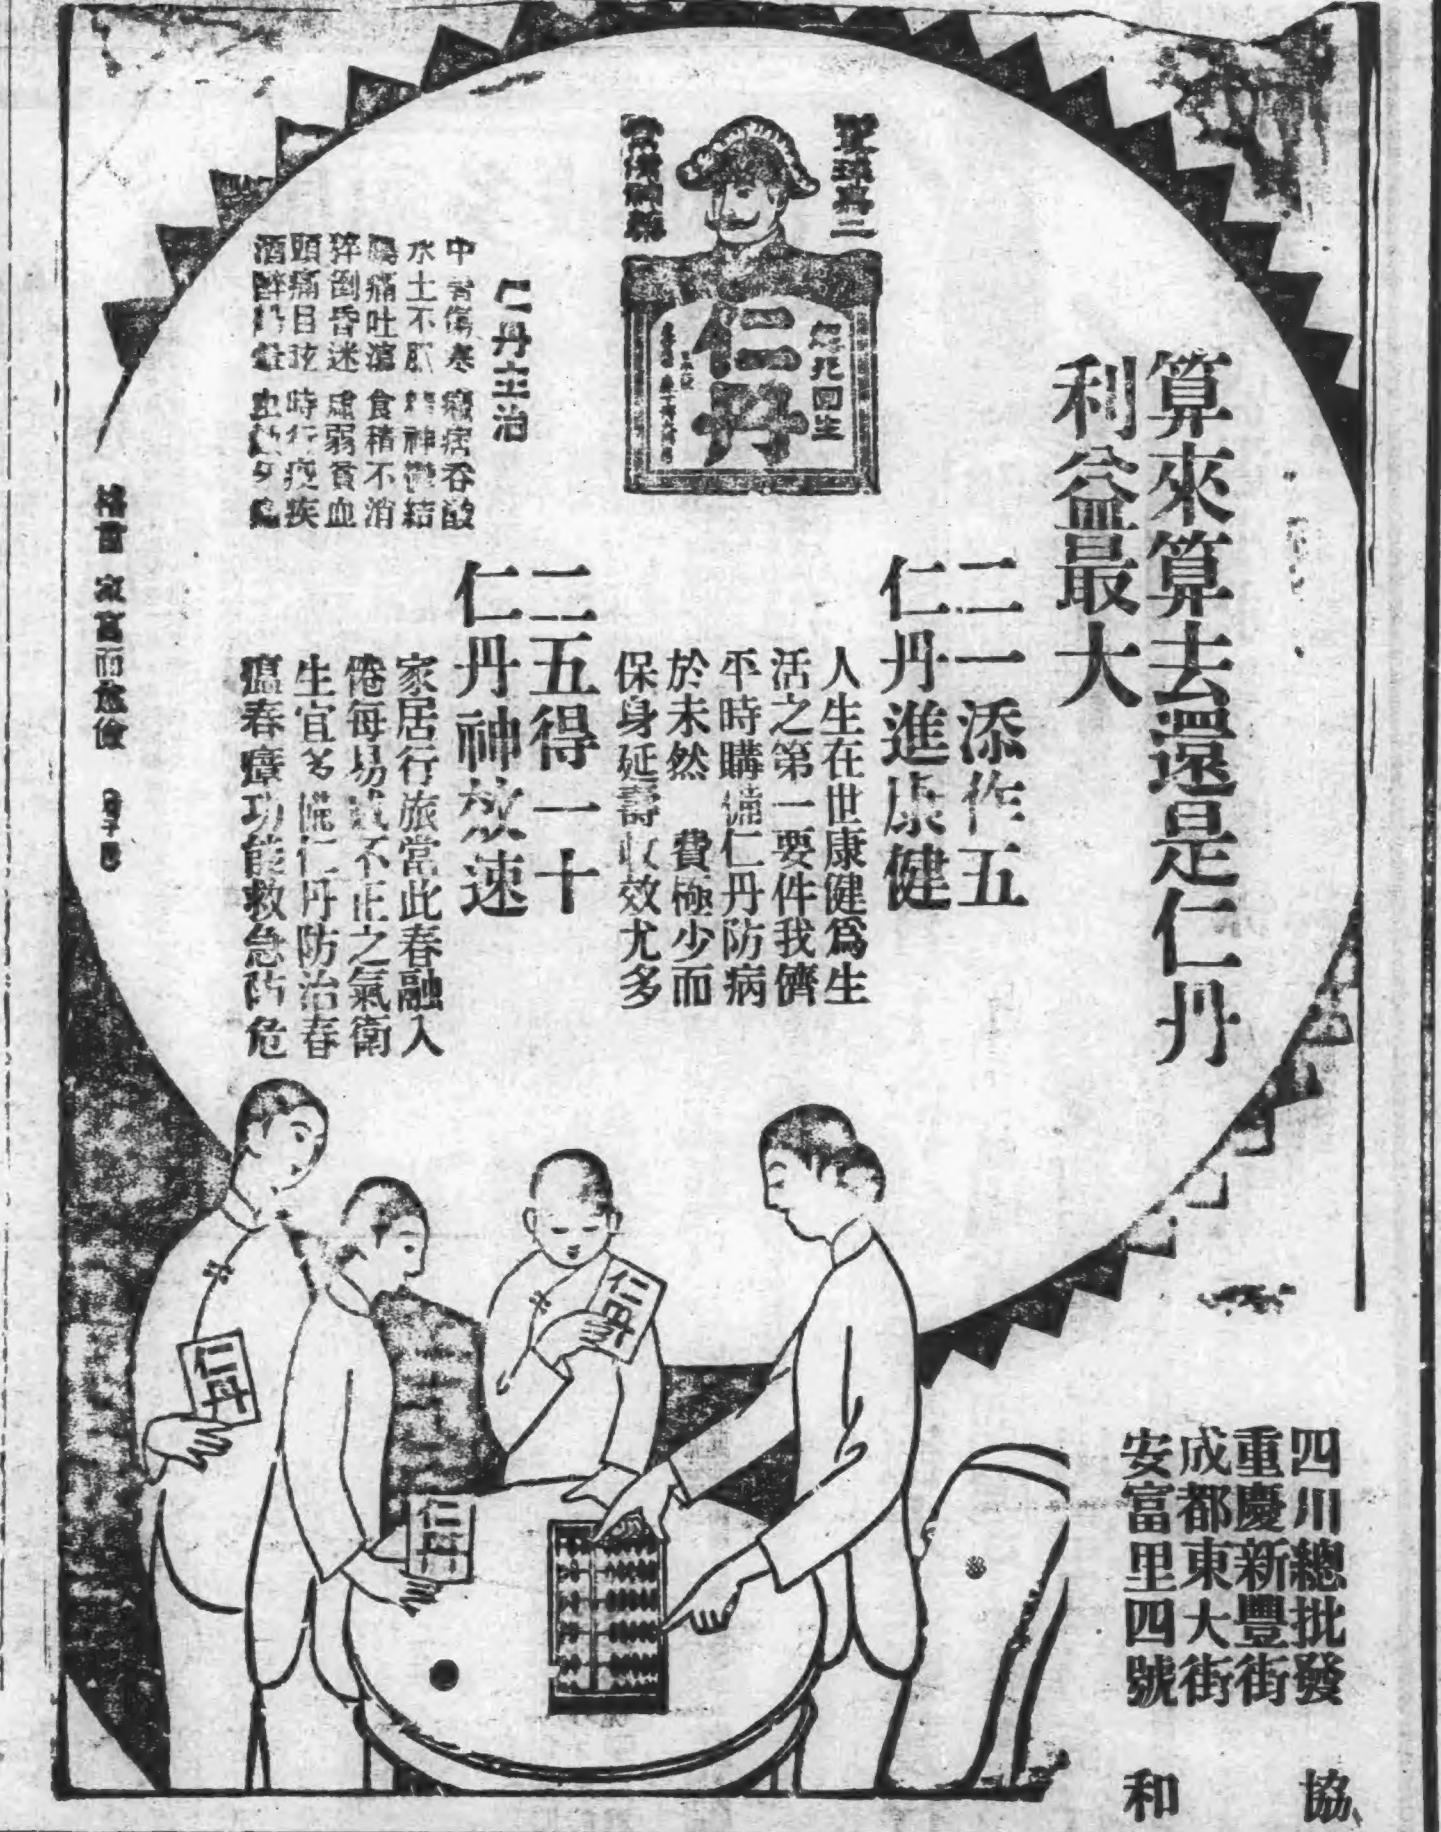 算來算去還是仁丹
利益最大
二一添作五
仁丹進康健
人生在世康健爲生
活之第一要件我儕
平時購備仁丹防病
於未然 費極少而
保身延壽收效尤多
二五得一十
仁丹神效速
家居行旅當此春融入
倦每易 不正之氣衛
生宜多備仁丹防治春
瘟春瘴功能救急防危
起死回生
仁丹
仁丹主治
中暑傷寒 吞酸
水土不服 精神鬱結
腸痛吐瀉 食積不消
猝倒昏迷 虛弱貧血
頭痛目眩 時行疫疾
酒醉
格言 家富而愈儉
仁丹
仁丹
仁丹
四川總批發
重慶新豐街
成都東大街
安富里四號
協和